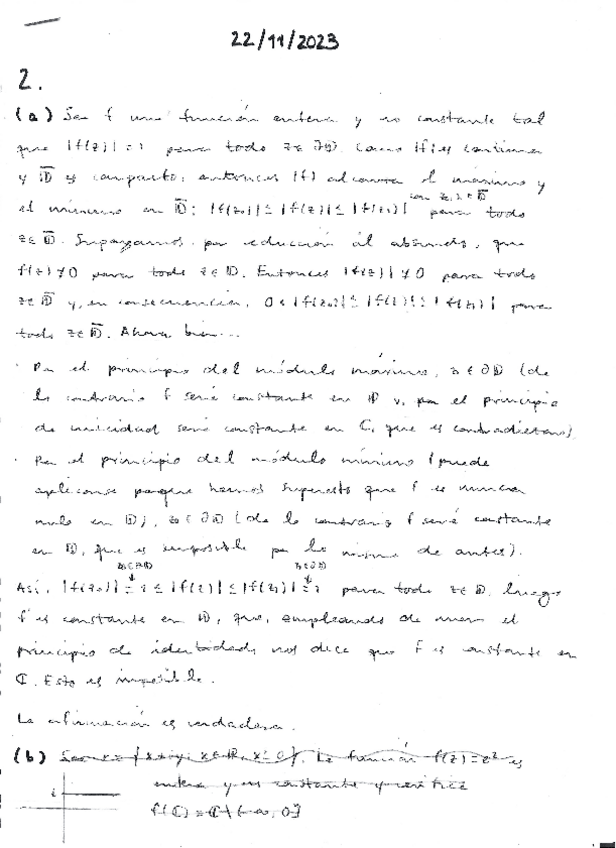 22/11/2023
2.
(a) Sea f una función entera y no constante tal
que |f(z)| = 1 para todo z ∈ ∂D. Como |f| es continua
y D̅ es compacto, entonces |f| alcanza el máximo y
el mínimo en D̅: |f(z₀)| ≤ |f(z)| ≤ |f(z₁)| con z₀, z₁ ∈ D̅ para todo
z ∈ D̅. Supongamos, por reducción al absurdo, que
f(z) ≠ 0 para todo z ∈ D. Entonces |f(z)| ≠ 0 para todo
z ∈ D̅ y, en consecuencia, 0 < |f(z₀)| ≤ |f(z)| ≤ |f(z₁)| para
todo z ∈ D̅. Ahora bien...
· Por el principio del módulo máximo, z₁ ∈ ∂D (de
lo contrario f será constante en D y, por el principio
de unicidad será constante en ℂ, que es contradictorio).
· Por el principio del módulo mínimo (puede
aplicarse porque hemos supuesto que f es nunca
nula en D), z₀ ∈ ∂D (de lo contrario f será constante
en D, que es imposible por lo mismo de antes).
z₀ ∈ ∂D z₁ ∈ ∂D
Así, |f(z₀)| = 1 ≤ |f(z)| ≤ |f(z₁)| = 1 para todo z ∈ D, luego
f es constante en D, que, empleando de nuevo el
principio de identidad, nos dice que f es constante en
ℂ. Esto es imposible.
La afirmación es verdadera.
(b) La función f(z) = e^z es
entera y no constante y verifica
f(ℂ) = ℂ \ (-∞, 0]
i